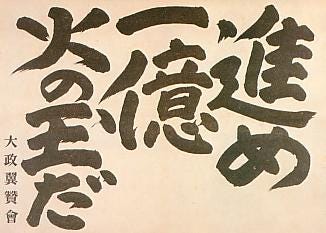 進め
一億
火の玉だ
大政翼贊會